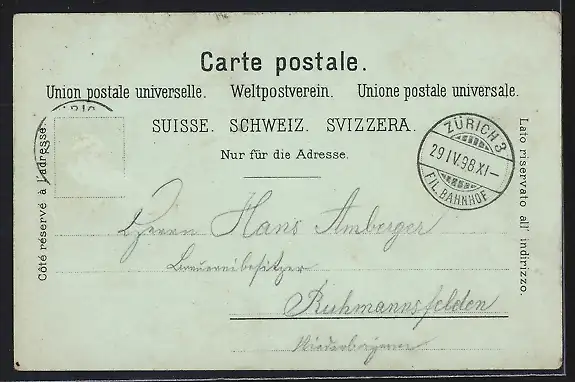 Carte postale.
Union postale universelle. Weltpostverein. Unione postale universale.
SUISSE. SCHWEIZ. SVIZZERA.
Nur für die Adresse.
Côté réservé à l'adresse.
Lato riservato all' indirizzo.
ZÜRICH 3
29.IV.98.XI—
FIL. BAHNHOF
Herrn Hans Amberger
Brauereibesitzer
Ruhmannsfelden
Niederbayern